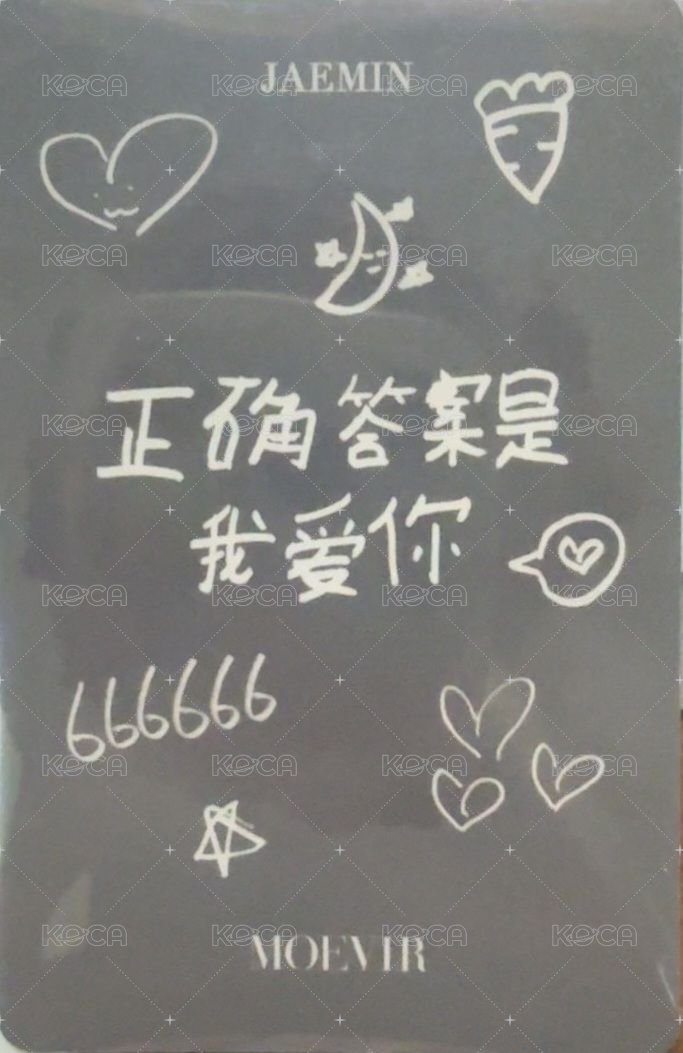 JAEMIN
正确答案是
我爱你
666666
MOEVIR
KOCA